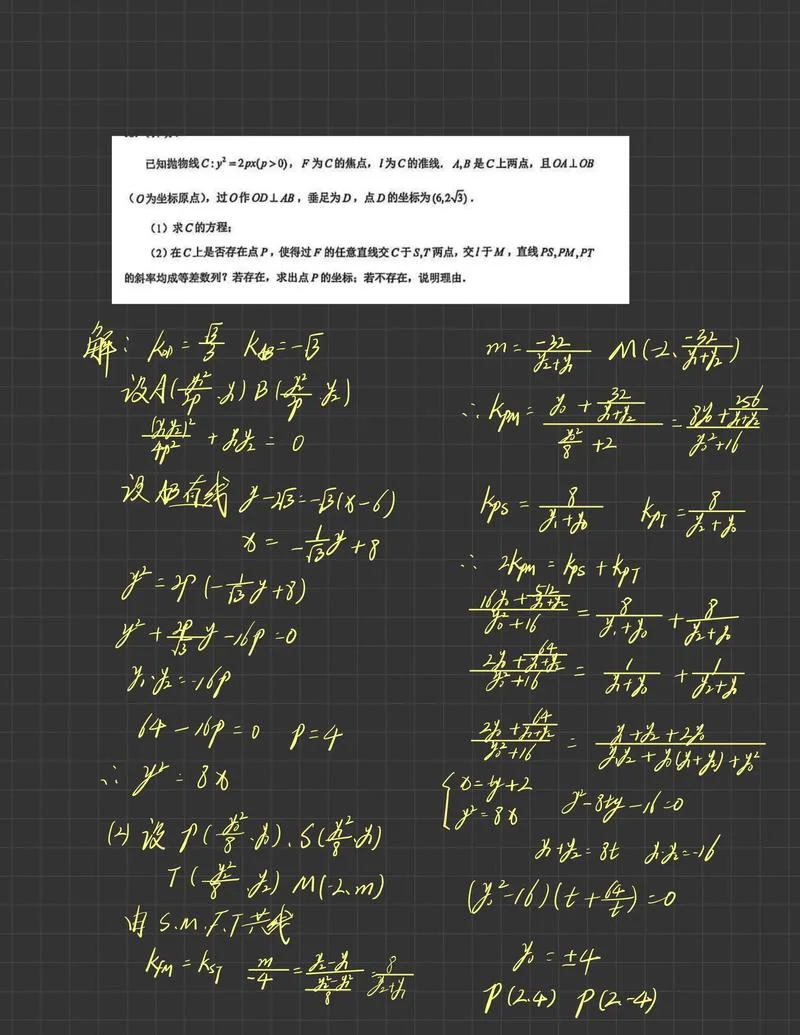 已知抛物线C:y²=2px(p>0)，F为C的焦点，l为C的准线．A,B是C上两点，且OA⊥OB
（O为坐标原点），过O作OD⊥AB，垂足为D，点D的坐标为(6,2√3)．
（1）求C的方程；
（2）在C上是否存在点P，使得过F的任意直线交C于S,T两点，交l于M，直线PS,PM,PT
的斜率均成等差数列？若存在，求出点P的坐标；若不存在，说明理由．
解：k_OD=√3/3 k_AB=-√3
设A(y₁²/2p, y₁) B(y₂²/2p, y₂)
(y₁y₂)²/4p² + y₁y₂ = 0
设AB直线 y-2√3=-√3(x-6)
x=-1/√3 y+8
y²=2p(-1/√3 y+8)
y²+2p/√3 y-16p=0
y₁·y₂=-16p
64-16p=0 p=4
∴ y²=8x
(2) 设P(y₀²/8, y₀)、S(y₁²/8, y₁)
T(y₂²/8, y₂) M(-2, m)
由S.M.F.T共线
k_FM=k_ST m/-4=(y₂-y₁)/((y₂²-y₁²)/8)=8/(y₂+y₁)
m=-32/(y₂+y₁) M(-2, -32/(y₁+y₂))
∴ k_PM=(y₀+32/(y₁+y₂))/(y₀²/8+2)=(8y₀+256/(y₁+y₂))/(y₀²+16)
k_PS=8/(y₁+y₀) k_PT=8/(y₂+y₀)
∴ 2k_PM=k_PS+k_PT
(16y₀+512/(y₁+y₂))/(y₀²+16)=8/(y₁+y₀)+8/(y₂+y₀)
(2y₀+64/(y₁+y₂))/(y₀²+16)=1/(y₁+y₀)+1/(y₂+y₀)
(2y₀+64/(y₁+y₂))/(y₀²+16)=(y₁+y₂+2y₀)/(y₁y₂+y₀(y₁+y₂)+y₀²)
{x=ty+2
y²=8x y²-8ty-16=0
y₁+y₂=8t y₁·y₂=-16
(y₀²-16)(t+64/t)=0
y₀=±4
P(2,4) P(2,-4)